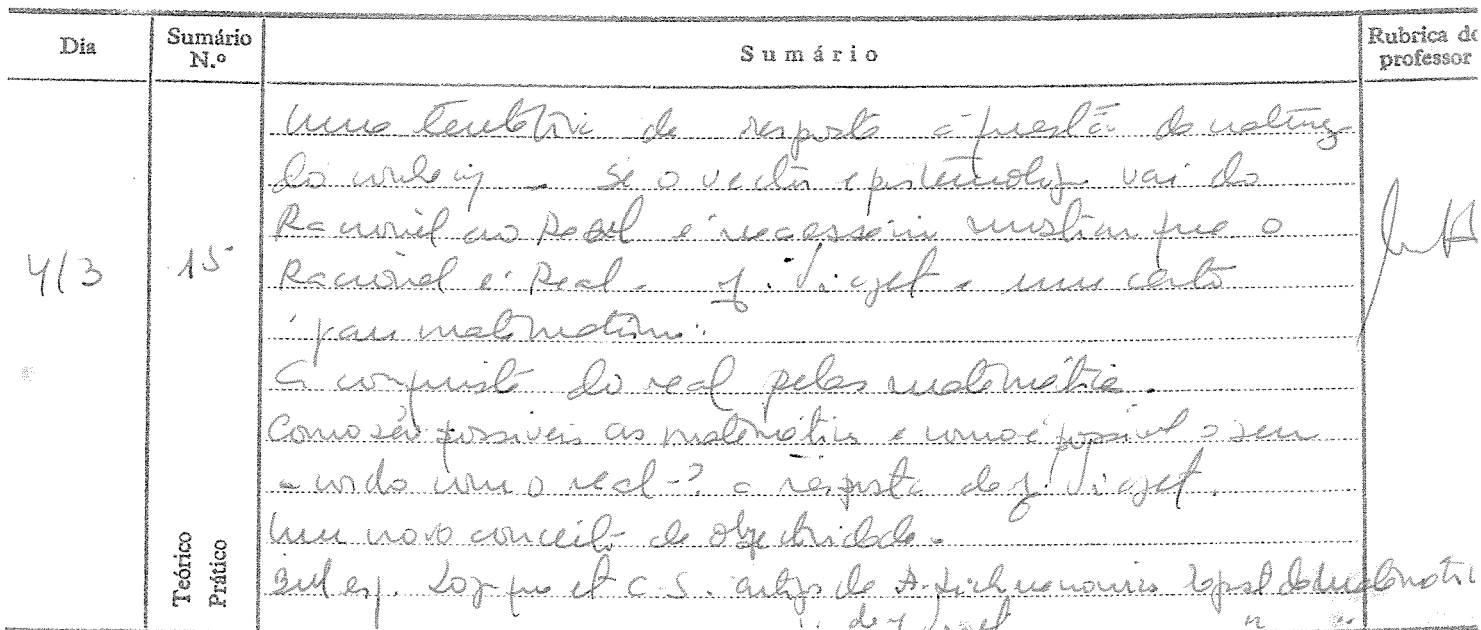 Dia
Sumário N.º
Sumário
Rubrica do professor
4/3
15
Uma tentativa de resposta à questão da natureza
do conhecim - Se o vector epistemolog vai do
Racional ao Real é necessário mostrar que o
Racional é Real - J. Piaget e um certo
"pan matematismo".
A conquista do real pelas matemáticas.
Como são possíveis as matemáticas e como é possível o seu
acordo com o real -? a resposta de J. Piaget.
Um novo conceito de objectividade.
Logique et C. S. artigo de A. Lichnerowicz
de J. Piaget
Teórico
Prático